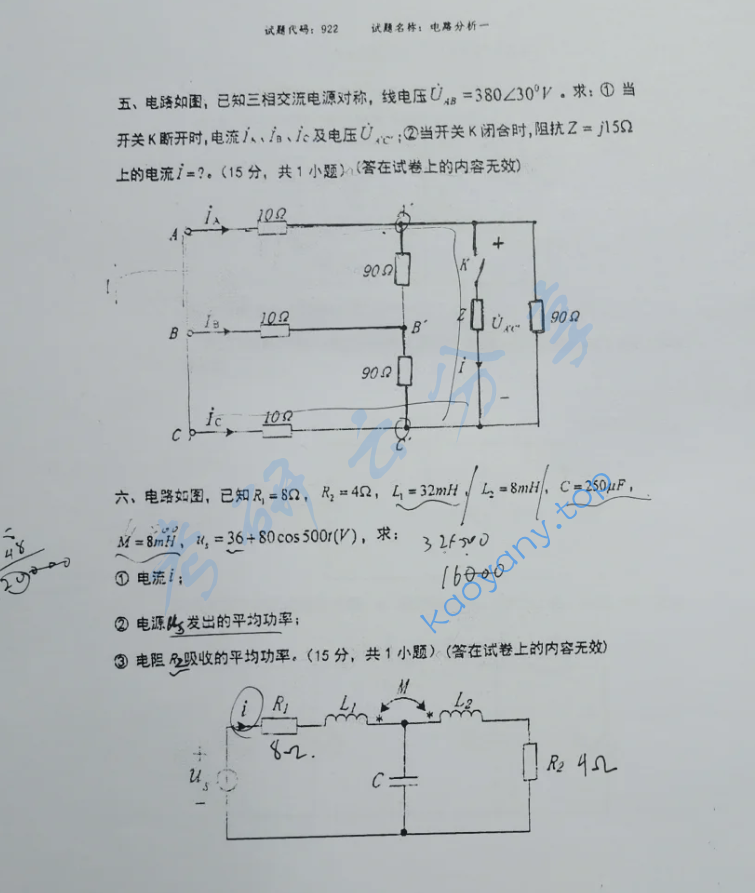 试题代码：922 试题名称：电路分析一
五、电路如图，已知三相交流电源对称，线电压U̇_AB=380∠30⁰V。求：① 当
开关K断开时，电流i̇_A、i̇_B、i̇_C及电压U̇_A'C'；②当开关K闭合时，阻抗Z=j15Ω
上的电流i̇=?。（15分，共1小题）（答在试卷上的内容无效）
A i̇_A 10Ω
90Ω K +
B i̇_B 10Ω B' Z U̇_A'C' 90Ω
90Ω i̇
−
C i̇_C 10Ω C'
六、电路如图，已知R₁=8Ω，R₂=4Ω，L₁=32mH，L₂=8mH，C=250μF，
M=8mH，u_s=36+80cos500t(V)，求：
① 电流i；
② 电源u_s发出的平均功率；
③ 电阻R₂吸收的平均功率。（15分，共1小题）（答在试卷上的内容无效）
48
16000
i R₁ L₁ * M * L₂
8Ω.
+
u_s C R₂ 4Ω
−
考研云分享
kaoyany.top